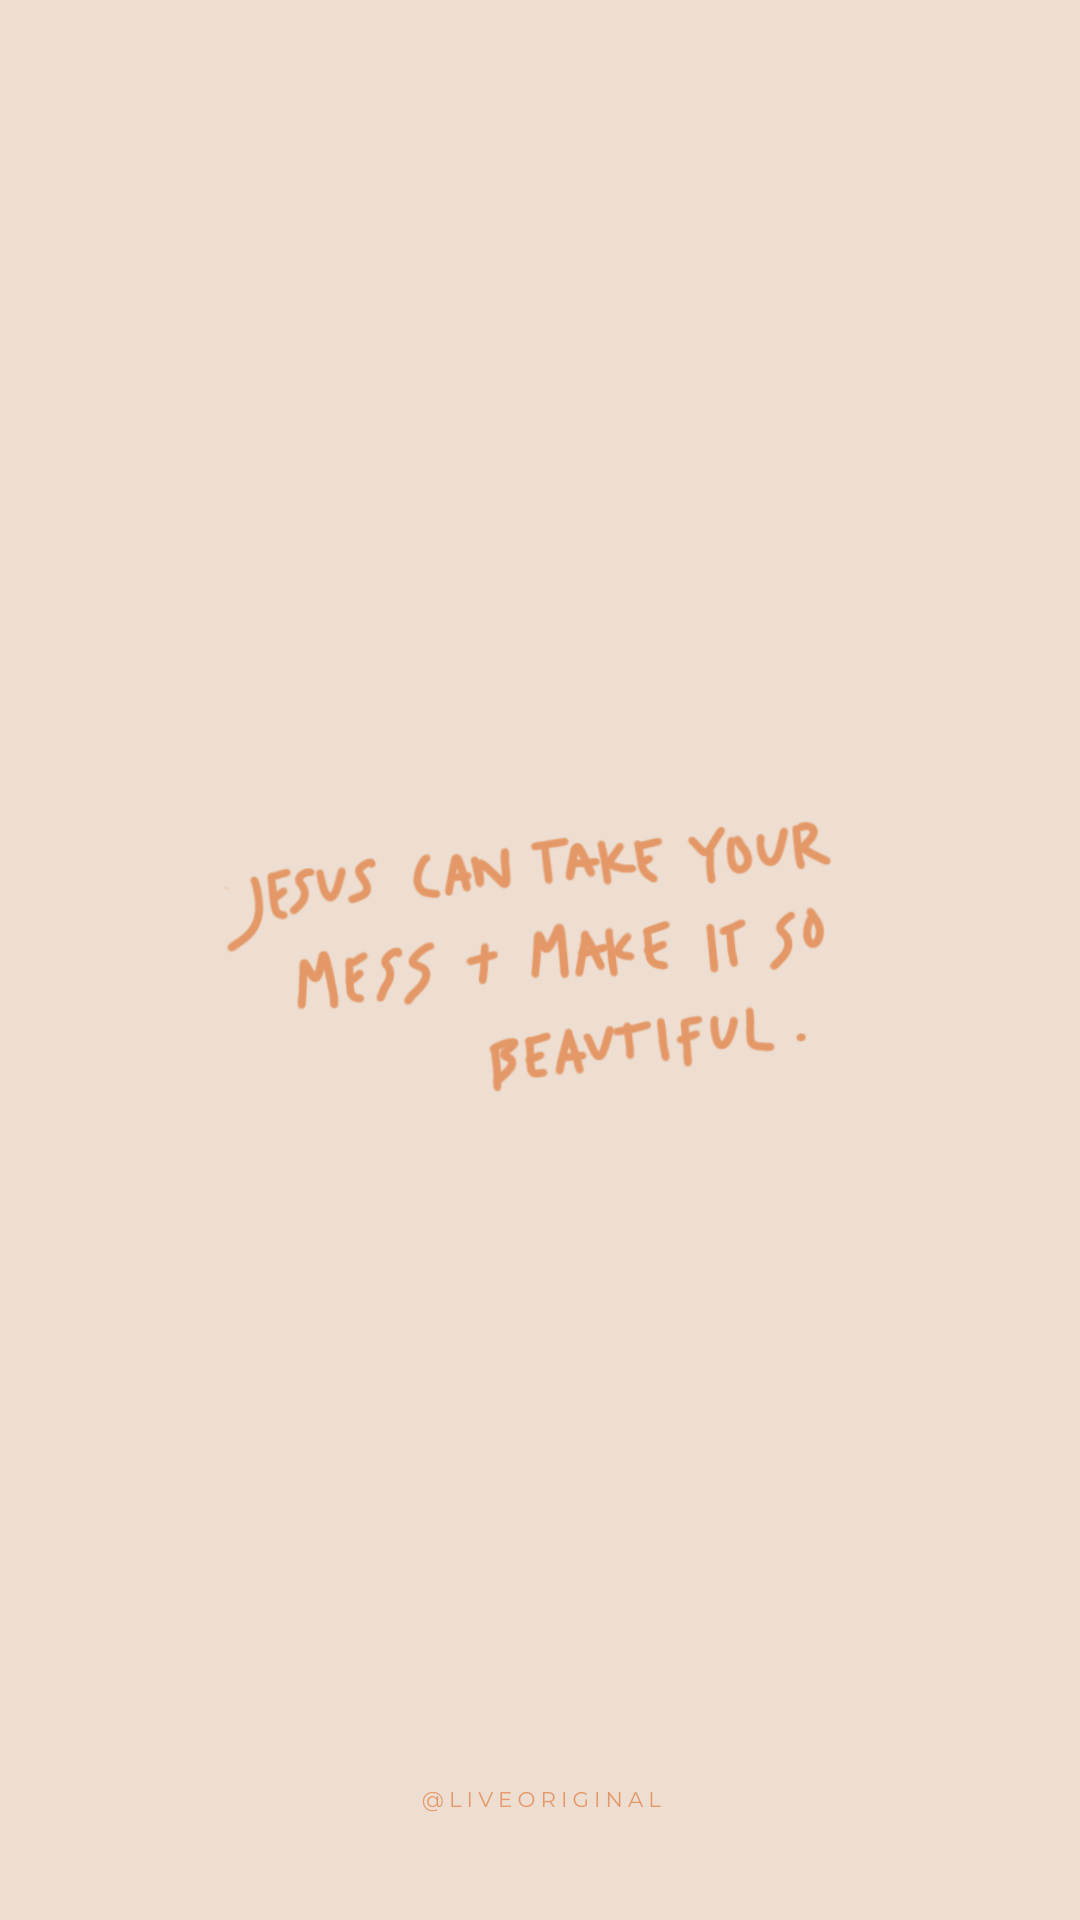 JESUS CAN TAKE YOUR
MESS + MAKE IT SO
BEAUTIFUL.
@LIVEORIGINAL